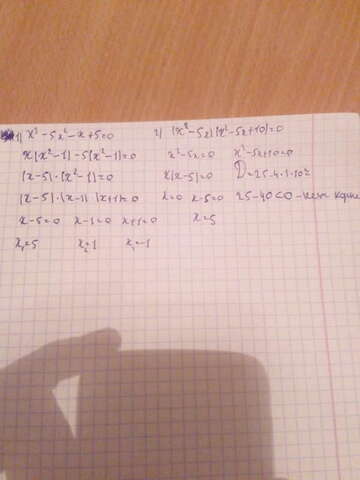 1) x³-5x²-x+5=0
x(x²-1)-5(x²-1)=0
(x-5)·(x²-1)=0
(x-5)·(x-1)(x+1)=0
x-5=0 x-1=0 x+1=0
x₁=5 x₂=1 x₃=-1
2) (x²-5x)(x²-5x+10)=0
x²-5x=0 x²-5x+10=0
x(x-5)=0 D=25-4·1·10=
x=0 x-5=0 25-40<0-нет
x=5